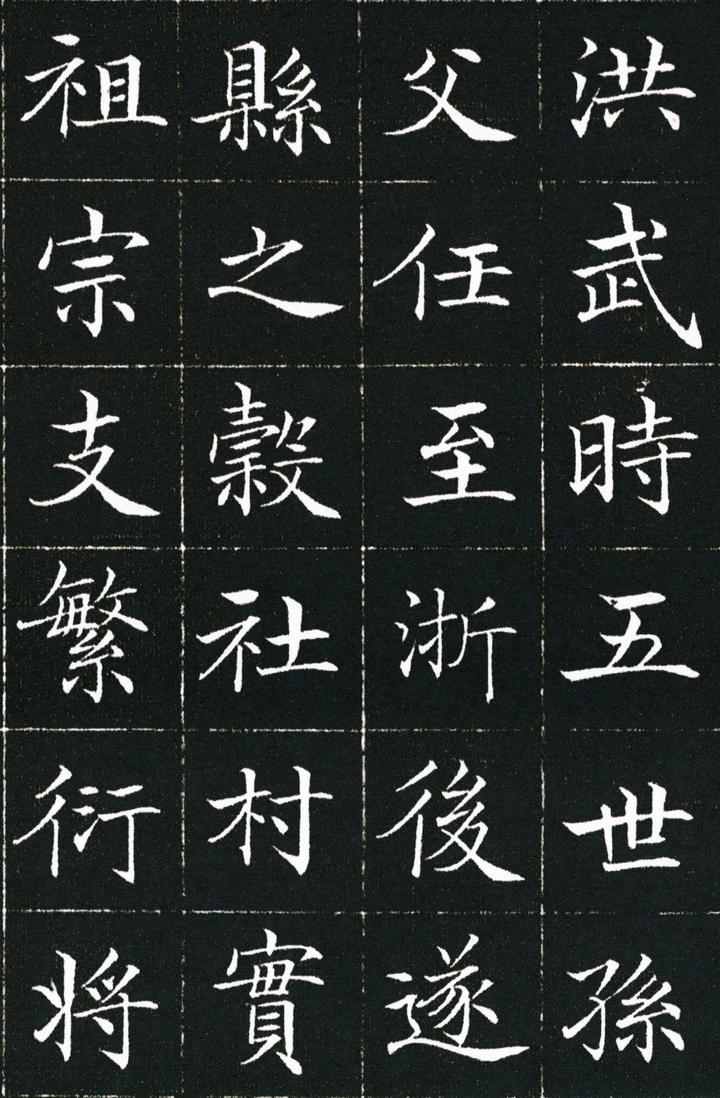 洪武時五世孫
父任至浙後遂
縣之穀社村實
祖宗支繁衍將